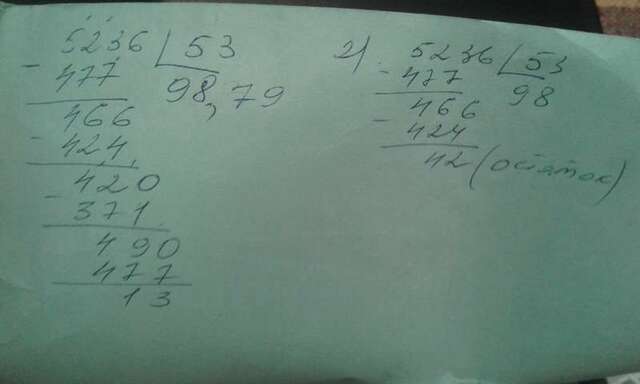 5236 | 53
- 477 98,79
466
- 424
420
- 371
490
477
13
2) 5236 | 53
- 477 98
466
- 424
42 (остаток)